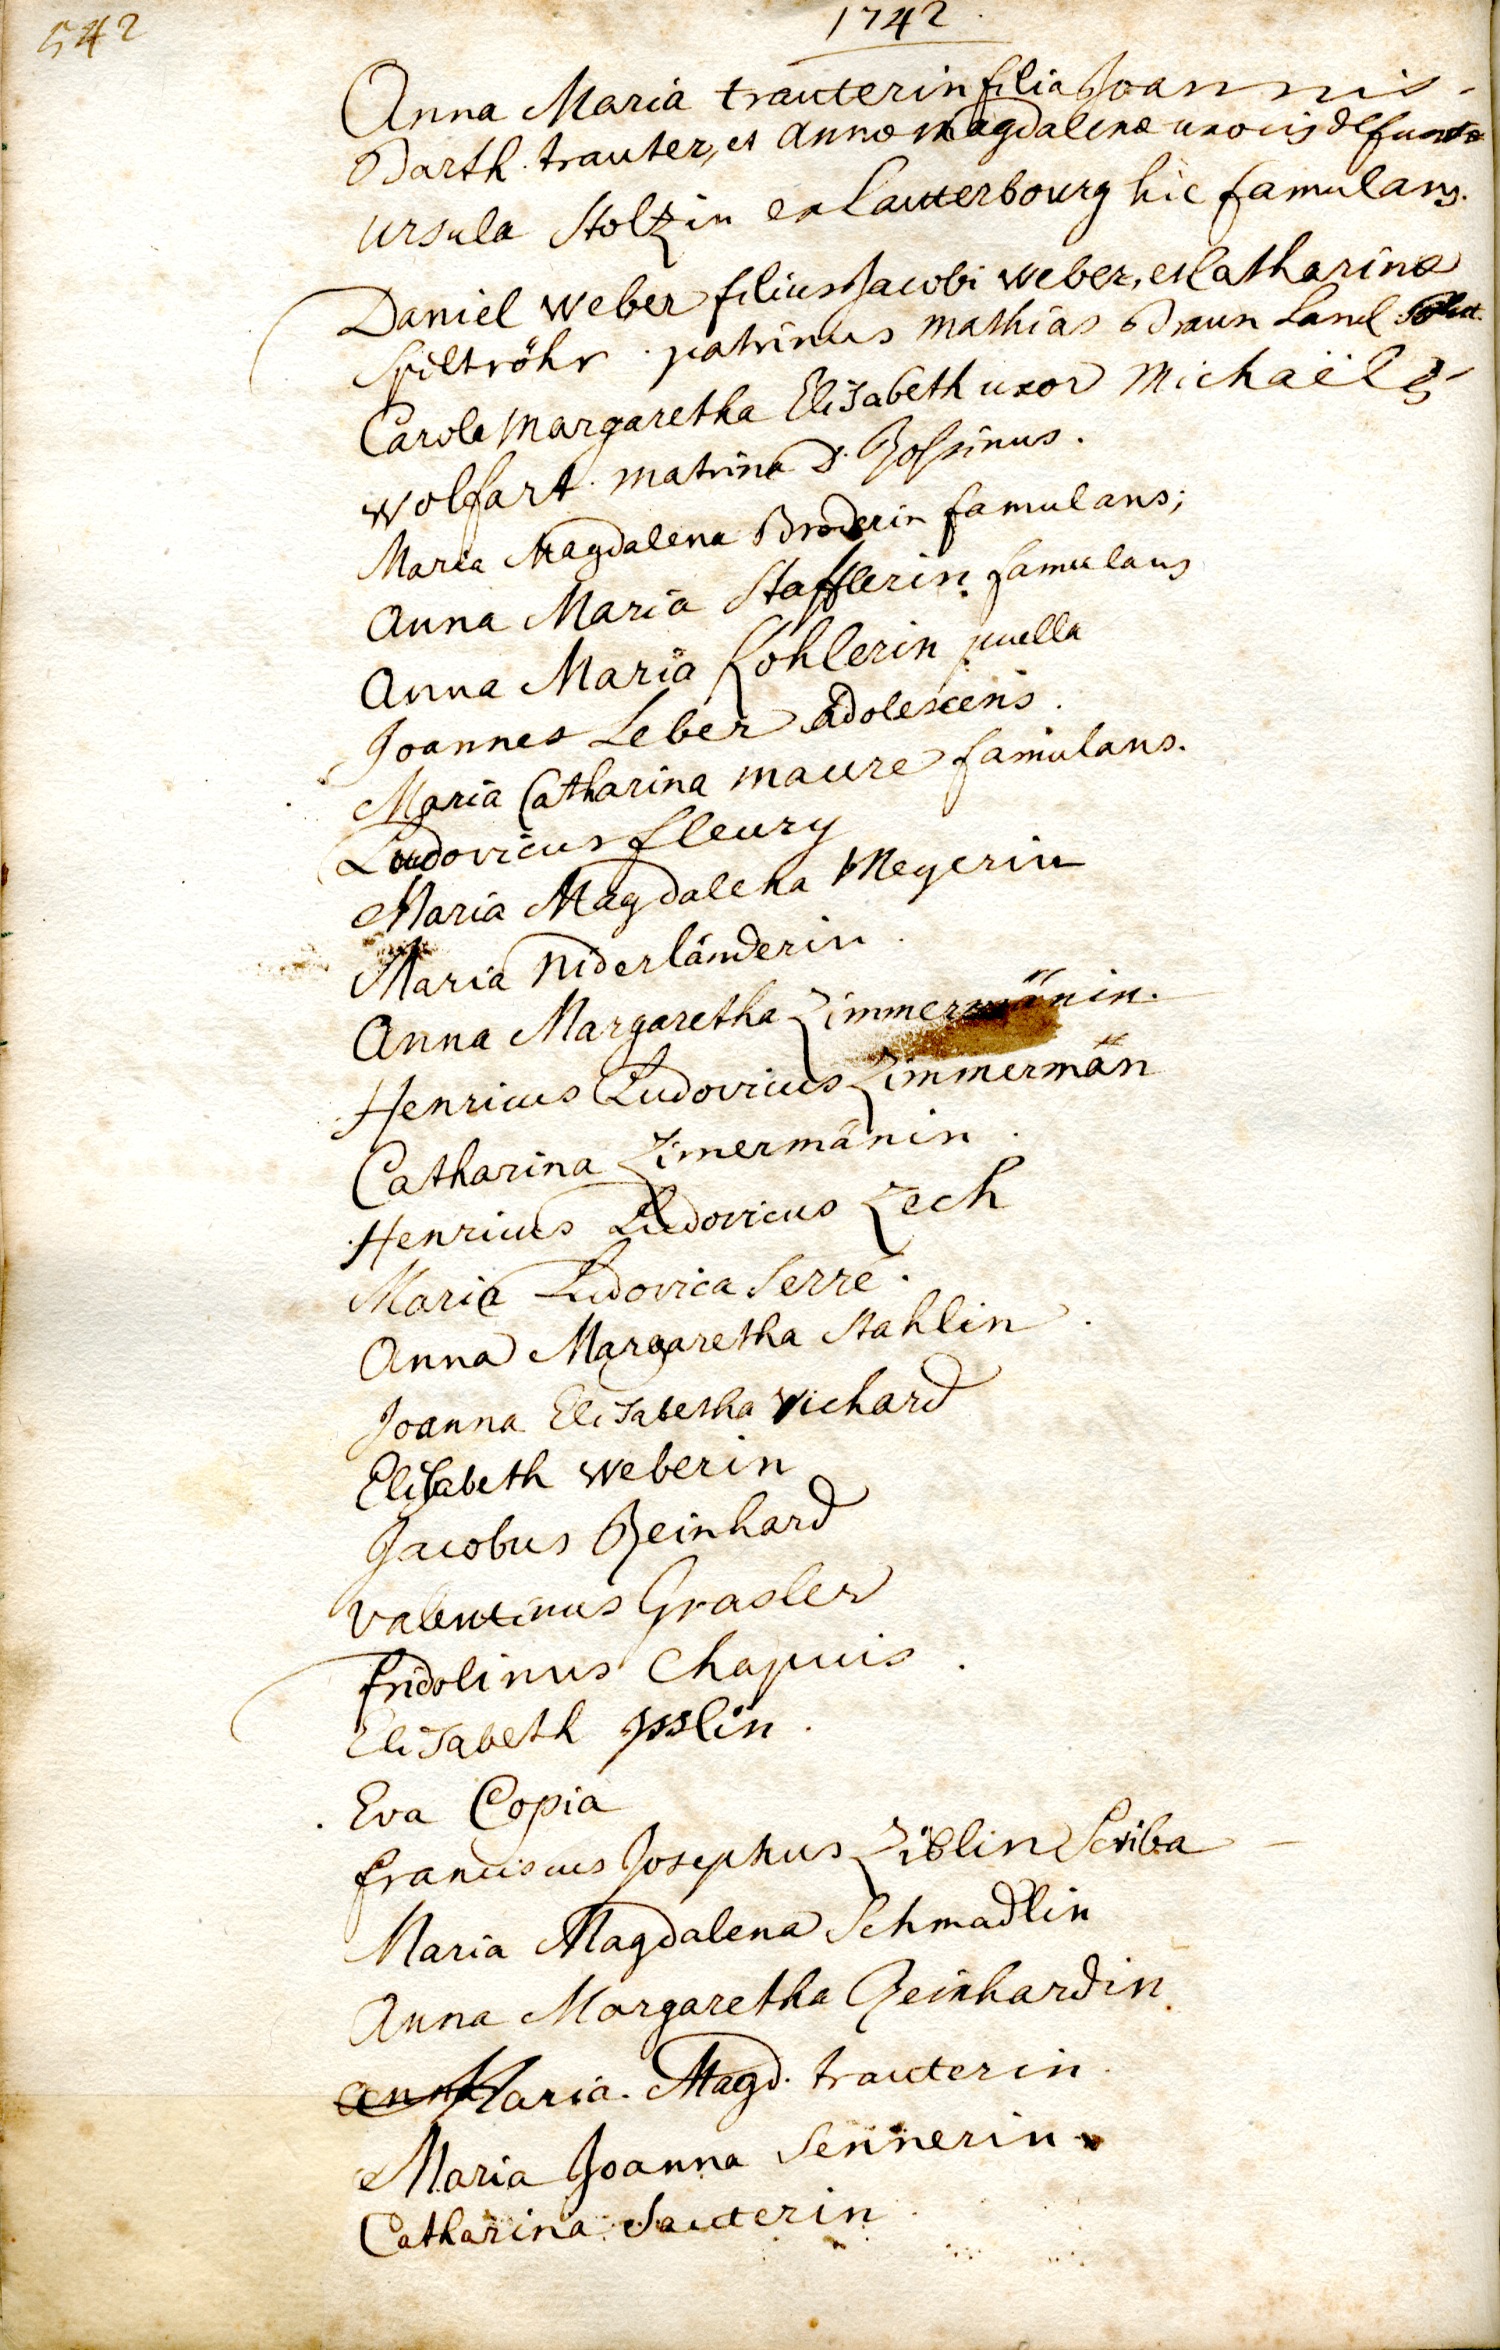 542
1742.
Anna Maria trauterin filia Joannis
Barth. trauter, et annæ Magdalenæ uxoris defunctæ
Ursula Stoltzin ex Lauterbourg hic famulans.
Daniel Weber filius Jacobi Weber, et Catharinæ
Spiltröhr. patrinus Mathias Braun Land
Carole Margaretha Elisabeth uxor Michaëlis
Wolfart. matrina D.
Maria Magdalena Broderin famulans;
Anna Maria Stafflerin famulans
Anna Maria Kohlerin puella
Joannes Leber adolescens.
Maria Catharina Maure famulans.
Ludovicus fleury
Maria Magdalena Meyerin
Maria Niderländerin.
Anna Margaretha Zimmermänin.
Henricus Ludovicus Zimmermän
Catharina Zimermänin.
Henricus Ludovicus Zech
Maria Ludovica Serré.
Anna Margaretha Stahlin.
Joanna Elisabetha Vichard
Elisabeth Weberin
Jacobus Reinhard
Valentinus Grasler
fridolinus Chapuis.
Elisabeth Ysslin.
Eva Copia
franciscus Josephus Züblin Scriba
Maria Magdalena Schmadlin
Anna Margaretha Reinhardin
Maria. Magd. trauterin.
Maria Joanna Sennerin
Catharina Sauterin